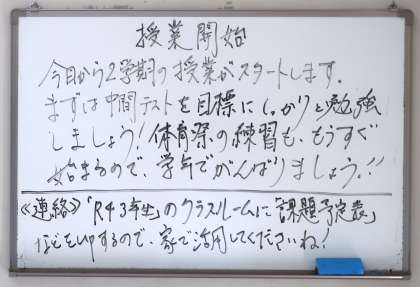 授業開始
今日から2学期の授業がスタートします。
まずは中間テストを目標にしっかりと勉強
しましょう！体育祭の練習も、もうすぐ
始まるので、学年でがんばりましょう!!
≪連絡≫「R4 3年生」のクラスルームに「課題予定表」
などをupするので、家で活用してくださいね！